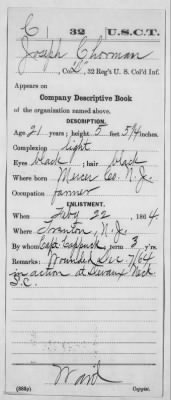 C | 32 | U.S.C.T.
Joseph Chorman
, Co. "D", 32 Reg't U. S. Col'd Inf.
Appears on
Company Descriptive Book
of the organization named above.
DESCRIPTION.
Age 21 years; height 5 feet 5 1/4 inches.
Complexion light
Eyes black; hair black
Where born Mercer Co. N. J.
Occupation farmer
ENLISTMENT.
When Feby 22, 1864
Where Trenton, N. J.
By whom Capt. ; term 3 y'rs.
Remarks: Wounded Dec 7/64
in action at Devaux Neck
S.C.
Ward
(383g) Copyist.